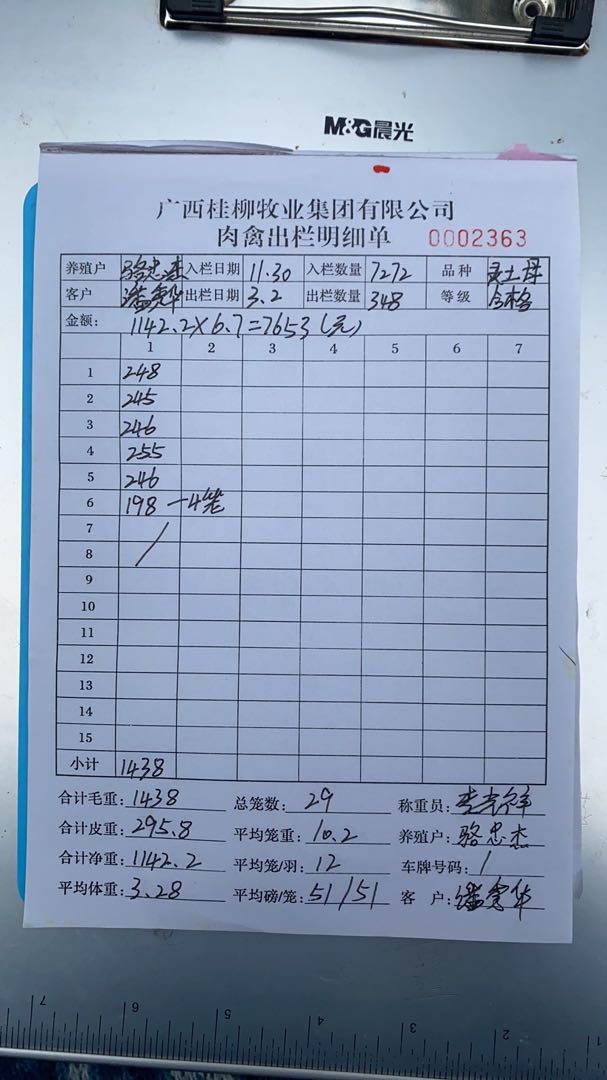 M&G晨光
广西桂柳牧业集团有限公司
肉禽出栏明细单 0002363
养殖户 骆忠杰 入栏日期 11.30 入栏数量 7272 品种 灵土母
客户 出栏日期 3.2 出栏数量 348 等级 合格
金额: 1142.2×6.7=7653(元)
1 2 3 4 5 6 7
1 248
2 245
3 246
4 255
5 246
6 198 —4笼
7
8
9
10
11
12
13
14
15
小计 1438
合计毛重: 1438 总笼数: 29 称重员:
合计皮重: 295.8 平均笼重: 10.2 养殖户: 骆忠杰
合计净重: 1142.2 平均笼/羽: 12 车牌号码: /
平均体重: 3.28 平均磅/笼: 51/51 客 户:
7 6 5 4 3 2